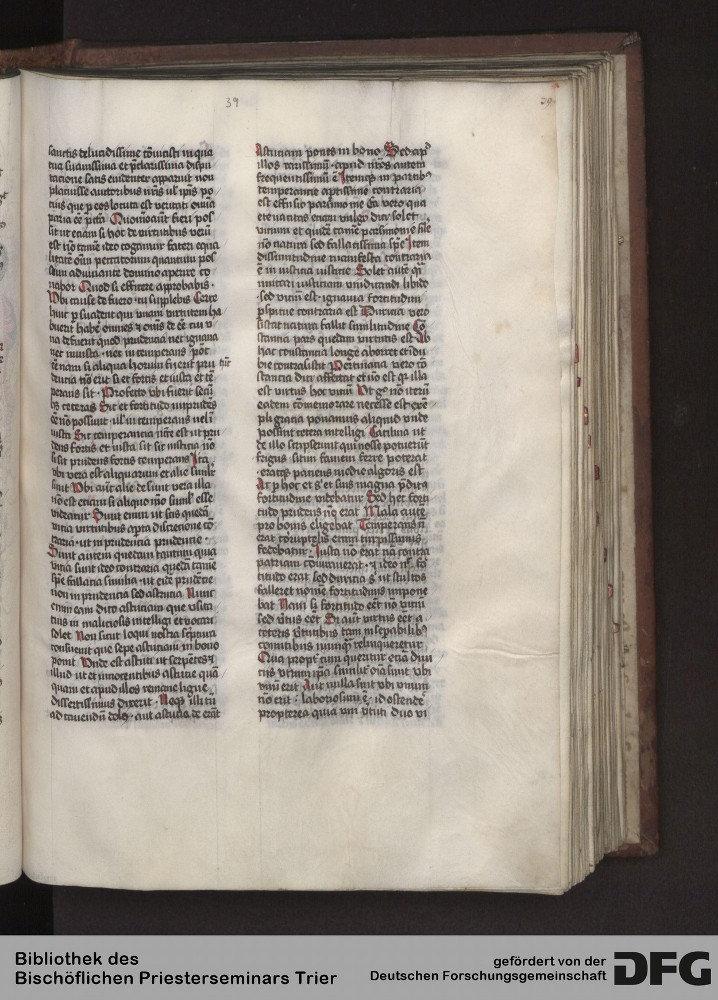 39
39
sanctis delucidissime cōuicisti in qua
tua suauissima et p̄clarissima dispu
tacione satis euidenter apparuit non
placuisse auctoribus nr̄is ul' ip̄is po
cius que p eos locuta est veritati om̄ia
paria eē pctā Quomō aut̄ fieri pos
sit ut eciam si hoc de virtutibus verū
est nō tamē ideo cogamur fateri equa
litatē om̄i peccatorum quantum pos
sum adiuuante domino aperire co
nabor Quod si effitere approbabis
Vbi cause defuero tu supplebis Certe
hinc p suadent qui vnam virtutem ha
buerit habē omnes et om̄is deeē cui v
na defuerit quod prudencia nec ignaua
nec iniusta nec intemperans pōt
eē nam si aliqua horum fuerit pru
dencia nō erit si et fortis et iusta et tē
perans sit Profecto vbi fuerit secū
hꝫ ceteras Sic et fortitudo imprudēs
eē nō possunt ul' intemperans uel i
iusta Sic temperancia n̄cē est ut pru
dens fortis et iusta sit sic iusticia nō
si sit prudens fortis temperans Ita
vbi vera est aliqua earum et alie simlr
sunt Vbi aut̄ alie desunt vera illa
nō est eciam si aliquo mō simil' esse
videatur Sunt enim ut scis quedā
vicia virtutibus aperta discretione cō
traria ut imprudencia prudencie
Sunt autem quedam tantum quia
vicia sunt ideo contraria quedā tamē
spē fallaci similia ut eidē prudēcie
non inprudencia sed astucia Nunc
enim eam dico astuciam que vsita
cius in maliciosis intelligi et vocari
solet Non sicut loqui nostra scptura
consueuit que sepe astuciam in bono
ponit Vnde est astuti ut serpētes et
illud ut et innocentibus astucie qua
quam et apud illos romane ligue
dissertissimus dixerit Neqꝫ illi tū
ad cauendū dolos aut astucia deerāt
Astuciam ponēs in bono Sed apͩ
illos rarissimū apud nr̄os autem
frequentissimū ē Itemqꝫ in partibꝰ
temperancie aptissime contraria
est effusio parsimonie Ea vero que
etenantas enim vulgo dici solet
vicium et quidē tamē parsimonie sil'e
nō natura sed fallacissima spē Item
dissimilitudine manifesta contraria
ē in iusticia iusticie Solet autē q̄si
imitari iusticiam vindicandi libido
sed vicm̄ est ignauia fortitudini
pspicue contraria est Duricia vero
distat natura fallit similitudine Cō
stancia pars quedam virtutis est Ab
hac inconstancia longe abhorret et in du
bie contra sistit Pertinacia vero cō
stancia dici affectat et nō est qꝛ illa
est virtus hec vicium Vt g̊ nō iterū
eadem cōmemorare necesse est exē
pli gracia ponamus aliquid vnde
possint cetera intelligi Catilina ut
de illo scripserunt qui nosse potuerūt
frigus sitim famem ferre poterat
eratqꝫ paciens inedie algoris est
Ac p hoc et sͥ et suis magna pͩitꝰ
fortitudine videbatur Sed hec forti
tudo prudens nō erat Mala autē
pro bonis eligebat Temperans n̄
erat corruptelis enim turpissimis
fedebatur Iusta nō erat nā contra
patriam coniurauerat et ideo nͨ for
titudo erat sed duricia sͥ ut stultos
falleret nomē fortitudinis impone
bat Nam si fortitudo eēt nō vicium
sed vͥtus eēt Si aut̄ virtus eēt a
ceteris vͥtutibus tam inseparabilibꝰ
comitibus nunqꝫ relinqueretur
Qua propt̓ cum queritur etiā de vi
ciis vtrum ip̄a similit̓ om̄ia sunt vbi
vnū erit Aut nulla sint vbi vnum
nō erit laboriosum ē id ostende
propterea quia vni vͥtuti duo vi
Bibliothek des
Bischöflichen Priesterseminars Trier
gefördert von der
Deutschen Forschungsgemeinschaft
DFG